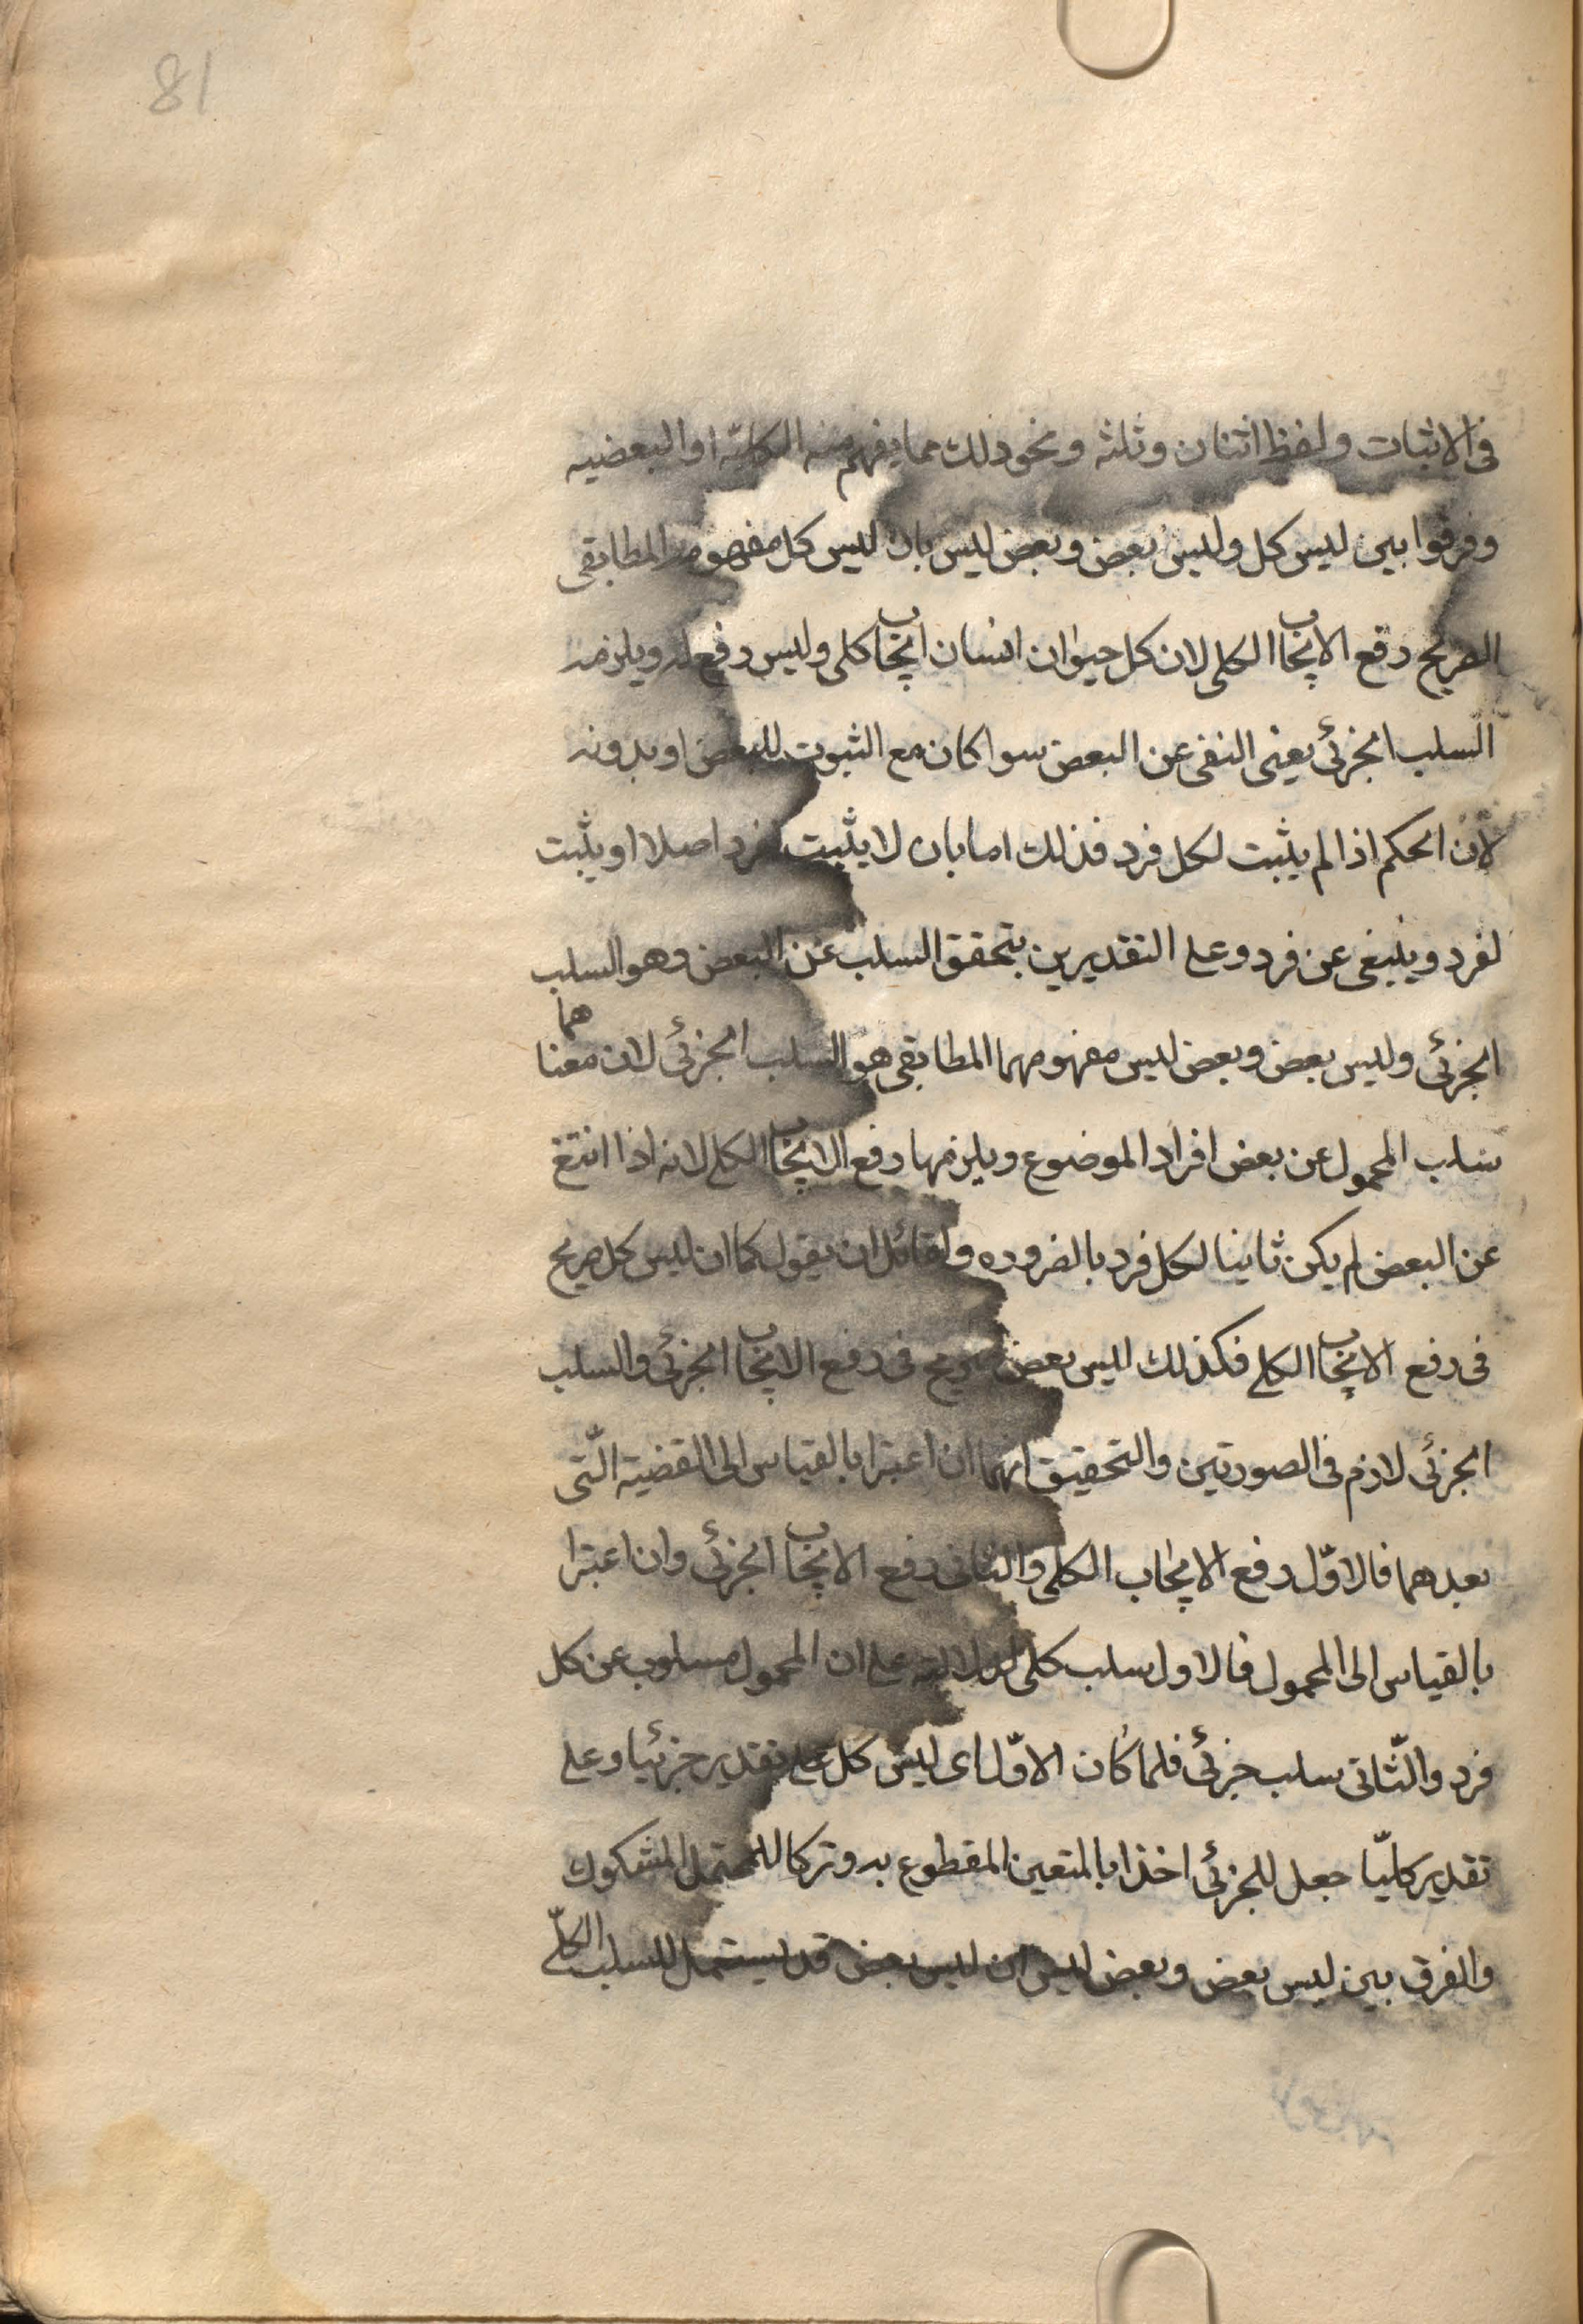 81
فى الاثبات ولفظ اثنان وثلثه ونحو ذلك مما يفهم منه الكليّة او البعضيه
وفرقوا بين ليس كل وليس بعض وبعض ليس بان ليس كل مفهومه المطابقى
الصريح رفع الايجاب الكلى لان كل حيوان انسان ايجاب كلى وليس رفع له ويلزمه
السلب الجزئى يعنى النفى عن البعض سوا كان مع الثبوت للبعض او بدونه
لانّ الحكم اذا لم يثبت لكل فرد فذلك اما بان لا يثبت لفرد اصلا او يثبت
لفرد وينفى عن فرد وعلى التقديرين يتحقق السلب عن البعض وهو السلب
الجزئى وليس بعض وبعض ليس مفهومهما المطابقى هو السلب الجزئى لان معناهما
سلب المحمول عن بعض افراد الموضوع ويلزمها رفع الايجاب الكلى لانه اذا انتفى
عن البعض لم يكن ثابتا لكل فرد بالضروره ولقائل ان يقول كما ان ليس كل صريح
فى رفع الايجاب الكلى فكذلك ليس بعض صريح فى رفع الايجاب الجزئى والسلب
الجزئى لازم فى الصورتين والتحقيق انهما ان اعتبرا بالقياس الى القضية الّتى
بعدهما فالاوّل رفع الايجاب الكلى والثانى رفع الايجاب الجزئى وان اعتبرا
بالقياس الى المحمول فالاول سلب كلى لدلالته على ان المحمول مسلوب عن كل
فرد والثّانى سلب جزئى فلما كان الاوّل اى ليس كل على تقدير جزئيا وعلى
تقدير كليّا جعل للجزئى اخذا بالمتعين المقطوع به وتركا للمحتمل المشكوك
والفرق بين ليس بعض وبعض ليس ان ليس بعض قد يستعمل للسلب الكلّى